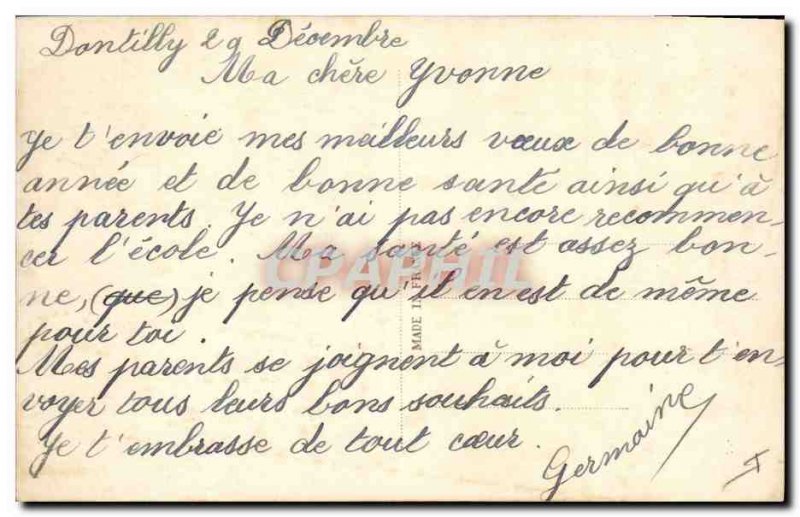 Dontilly 29 Décembre
Ma chère Yvonne
Je t'envoie mes meilleurs vœux de bonne
année et de bonne santé ainsi qu'à
tes parents. Je n'ai pas encore recommen-
cer l'école. Ma santé est assez bon-
ne, (que) je pense qu'il en est de même
pour toi.
Mes parents se joignent à moi pour t'en-
voyer tous leurs bons souhaits.
Je t'embrasse de tout cœur.
Germaine
MADE IN FRANCE
CPARPHIL